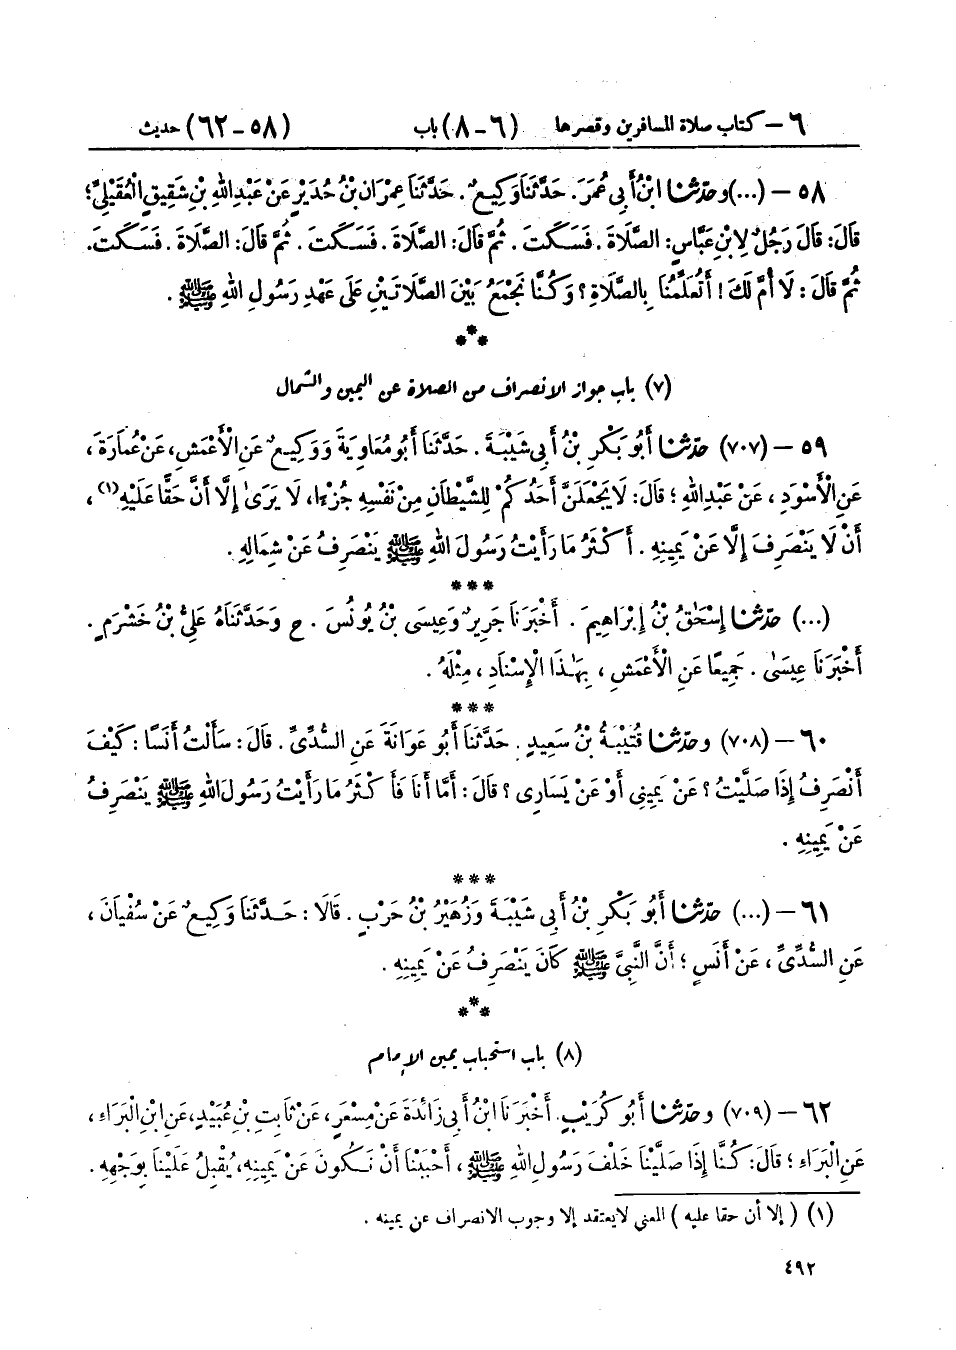 ٦ – كتاب صلاة المسافرين وقصرها (٦ – ٨) باب (٥٨ – ٦٢) حديث
٥٨ – (...) وحدّثنا ابْنُ أَبِي عُمَرَ. حَدَّثَنَا وَكِيعٌ. حَدَّثَنَا عِمْرَانُ بْنُ حُدَيْرٍ عَنْ عَبْدِ اللهِ بْنِ شَقِيقٍ الْعُقَيْلِيِّ؛
قَالَ: قَالَ رَجُلٌ لِابْنِ عَبَّاسٍ: الصَّلَاةَ. فَسَكَتَ. ثُمَّ قَالَ: الصَّلَاةَ. فَسَكَتَ. ثُمَّ قَالَ: الصَّلَاةَ. فَسَكَتَ.
ثُمَّ قَالَ: لَا أُمَّ لَكَ! أَتُعَلِّمُنَا بِالصَّلَاةِ؟ وَكُنَّا نَجْمَعُ بَيْنَ الصَّلَاتَيْنِ عَلَى عَهْدِ رَسُولِ اللهِ ﷺ.
***
(٧) باب جواز الانصراف من الصلاة عن اليمين والشمال
٥٩ – (٧٠٧) حدّثنا أَبُو بَكْرِ بْنُ أَبِي شَيْبَةَ. حَدَّثَنَا أَبُو مُعَاوِيَةَ وَوَكِيعٌ عَنِ الْأَعْمَشِ، عَنْ عُمَارَةَ،
عَنِ الْأَسْوَدِ، عَنْ عَبْدِ اللهِ؛ قَالَ: لَا يَجْعَلَنَّ أَحَدُكُمْ لِلشَّيْطَانِ مِنْ نَفْسِهِ جُزْءًا، لَا يَرَى إِلَّا أَنَّ حَقًّا عَلَيْهِ(١)،
أَنْ لَا يَنْصَرِفَ إِلَّا عَنْ يَمِينِهِ. أَكْثَرُ مَا رَأَيْتُ رَسُولَ اللهِ ﷺ يَنْصَرِفُ عَنْ شِمَالِهِ.
***
(...) حدّثنا إِسْحَٰقُ بْنُ إِبْرَاهِيمَ. أَخْبَرَنَا جَرِيرٌ وَعِيسَى بْنُ يُونُسَ. ح وَحَدَّثَنَاهُ عَلِيُّ بْنُ خَشْرَمٍ.
أَخْبَرَنَا عِيسَىٰ. جَمِيعًا عَنِ الْأَعْمَشِ، بِهَٰذَا الْإِسْنَادِ، مِثْلَهُ.
***
٦٠ – (٧٠٨) وحدّثنا قُتَيْبَةُ بْنُ سَعِيدٍ. حَدَّثَنَا أَبُو عَوَانَةَ عَنِ السُّدِّيِّ. قَالَ: سَأَلْتُ أَنَسًا: كَيْفَ
أَنْصَرِفُ إِذَا صَلَّيْتُ؟ عَنْ يَمِينِي أَوْ عَنْ يَسَارِي؟ قَالَ: أَمَّا أَنَا فَأَكْثَرُ مَا رَأَيْتُ رَسُولَ اللهِ ﷺ يَنْصَرِفُ
عَنْ يَمِينِهِ.
***
٦١ – (...) حدّثنا أَبُو بَكْرِ بْنُ أَبِي شَيْبَةَ وَزُهَيْرُ بْنُ حَرْبٍ. قَالَا: حَدَّثَنَا وَكِيعٌ عَنْ سُفْيَانَ،
عَنِ السُّدِّيِّ، عَنْ أَنَسٍ؛ أَنَّ النَّبِيَّ ﷺ كَانَ يَنْصَرِفُ عَنْ يَمِينِهِ.
***
(٨) باب استحباب يمين الإمام
٦٢ – (٧٠٩) وحدّثنا أَبُو كُرَيْبٍ. أَخْبَرَنَا ابْنُ أَبِي زَائِدَةَ عَنْ مِسْعَرٍ، عَنْ ثَابِتِ بْنِ عُبَيْدٍ، عَنِ ابْنِ الْبَرَاءِ،
عَنِ الْبَرَاءِ؛ قَالَ: كُنَّا إِذَا صَلَّيْنَا خَلْفَ رَسُولِ اللهِ ﷺ، أَحْبَبْنَا أَنْ نَكُونَ عَنْ يَمِينِهِ، يُقْبِلُ عَلَيْنَا بِوَجْهِهِ.
(١) (إلا أن حقا عليه) المعنى لا يعتقد إلا وجوب الانصراف عن يمينه.
٤٩٢